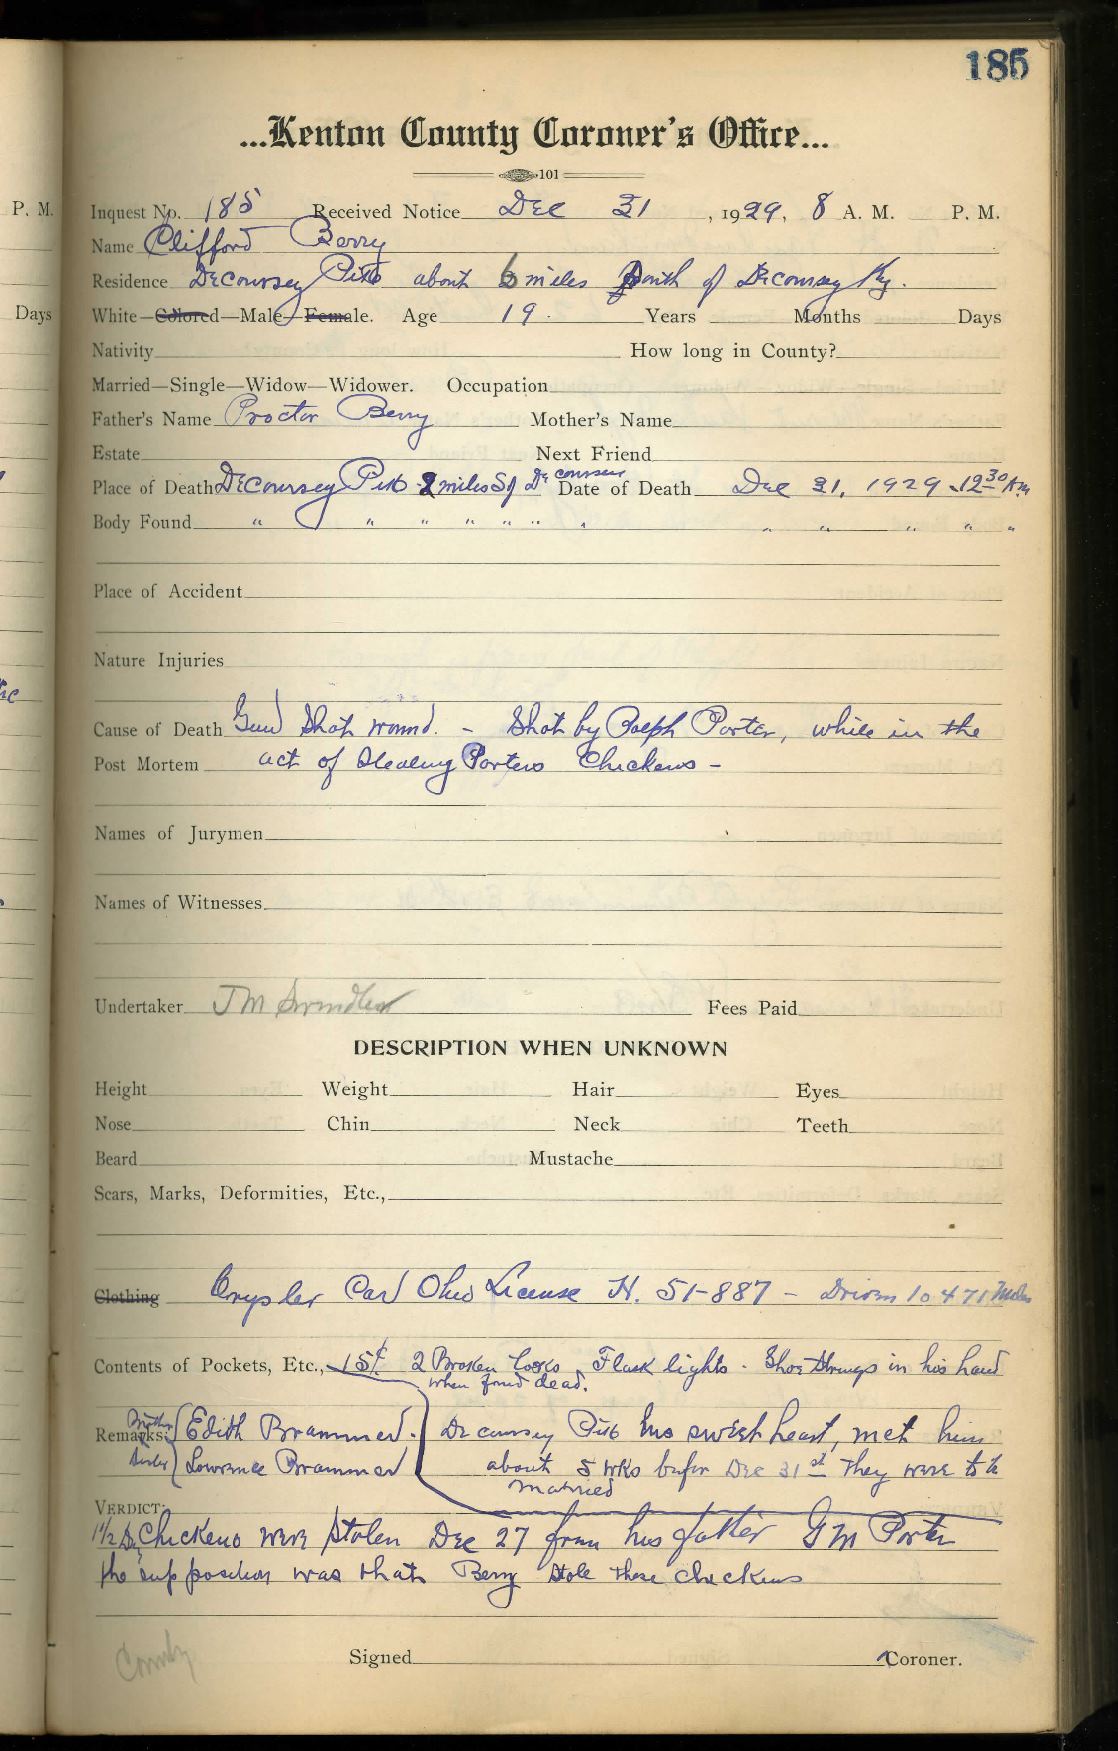 185
...Kenton County Coroner's Office...
101
P. M.
Inquest No. 185 Received Notice Dec 31, 1929, 8 A. M. P. M.
Name Clifford Berry
Residence DeCoursey Pike about 6 miles South of DeCoursey Ky.
Days
White—Colored—Male—Female. Age 19. Years Months Days
Nativity How long in County?
Married—Single—Widow—Widower. Occupation
Father's Name Proctor Berry Mother's Name
Estate Next Friend
Place of Death DeCoursey Pike 2 miles S of DeCoursey Date of Death Dec 31, 1929 12 30 A.m
Body Found " " " " " " " " " " "
Place of Accident
Nature Injuries
Cause of Death Gun Shot wound. - Shot by Ralph Porter, while in the
Post Mortem act of Stealing Porters Chickens -
Names of Jurymen
Names of Witnesses
Undertaker J M Swindler Fees Paid
DESCRIPTION WHEN UNKNOWN
Height Weight Hair Eyes
Nose Chin Neck Teeth
Beard Mustache
Scars, Marks, Deformities, Etc.,
Clothing Crysler Car Ohio License H. 51-887 - Driven 10471 Miles
Contents of Pockets, Etc., 15¢ 2 Broken Locks Flash lights. Shoe Strings in his hand
when found dead.
Remarks: Edith Brammer. Decoursey Pike his sweet heart, met him
Sister Lawrence Brammer about 5 wks befor Dec 31st They were to be
married
VERDICT:
1 1/2 Dz Chickens were stolen Dec 27 from his father G M Porter
the supposition was that Berry stole these chickens
Signed Coroner.